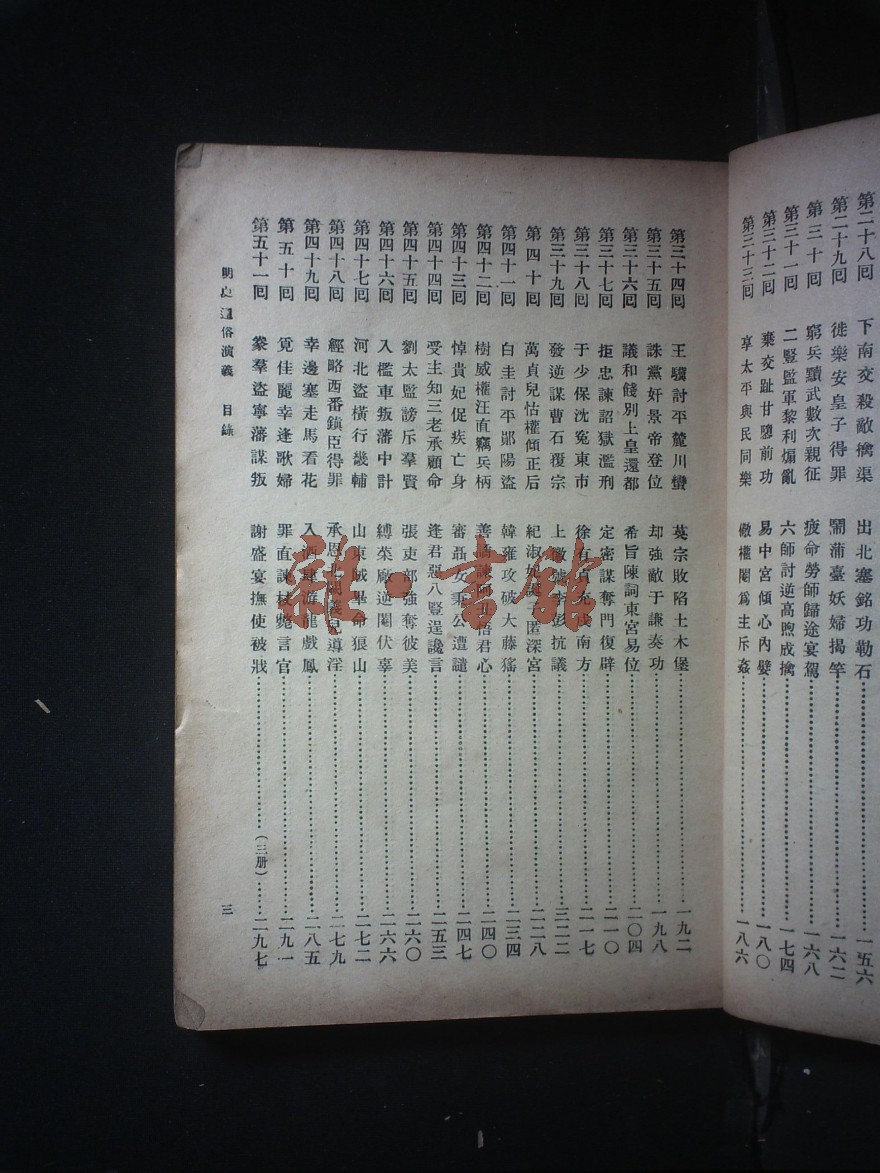 第二十八回 下南交殺敵擒渠 出北塞銘功勒石 一五六
第二十九回 徙樂安皇子得罪 鬧蒲臺妖婦揭竿 一六二
第三十回 窮兵黷武數次親征 疲命勞師歸途宴駕 一六八
第三十一回 二豎監軍黎利煽亂 六師討逆高煦成擒 一七四
第三十二回 棄交趾甘隳前功 易中宮傾心內嬖 一八〇
第三十三回 享太平與民同樂 儆權閹為主斥姦 一八六
第三十四回 王驥討平麓川蠻 英宗敗陷土木堡 一九二
第三十五回 誅黨奸景帝登位 却強敵于謙奏功 一九八
第三十六回 議和餞別上皇還都 希旨陳詞東宮易位 二〇四
第三十七回 拒忠諫詔獄濫刑 定密謀奪門復辟 二一〇
第三十八回 于少保沈冤東市 徐有貞充戍南方 二一七
第三十九回 發逆謀曹石覆宗 上徽號李彭抗議 三二二
第四十回 萬貞兒怙權傾正后 紀淑妃誕子匿深宮 二二八
第四十一回 白圭討平鄖陽盜 韓雍攻破大藤猺 二三四
第四十二回 樹威權汪直竊兵柄 善諧諫阿丑悟君心 二四〇
第四十三回 悼貴妃促疾亡身 審聶女秉公遭譴 二四七
第四十四回 受主知三老承顧命 逢君惡八豎逞讒言 二五三
第四十五回 劉太監謗斥羣賢 張吏部強奪彼美 二六〇
第四十六回 入檻車叛藩中計 縛菜廠逆閹伏辜 二六六
第四十七回 河北盜橫行畿輔 山東賊畢命狼山 二七二
第四十八回 經略西番鎮臣得罪 承恩北闕義兒導淫 二七九
第四十九回 幸邊塞走馬看花 入酒肆游龍戲鳳 二八五
第五十回 覓佳麗幸逢歌婦 罪直諫杖斃言官 二九一
第五十一回 豢羣盜寧藩謀叛 謝盛宴撫使被戕 (三册) 二九七
明史通俗演義 目錄 三
雜·書館